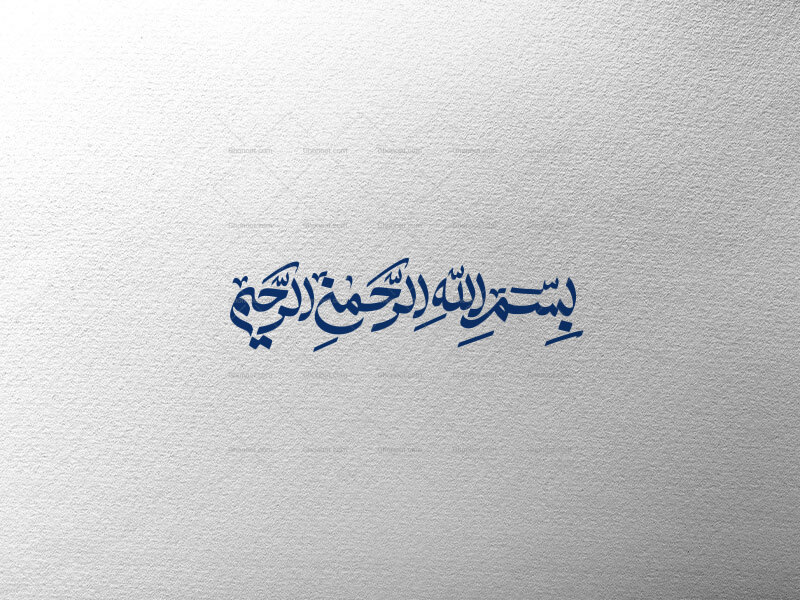 بِسّمِ اللّهِ الرَّحمنِ الرَّحیمِ